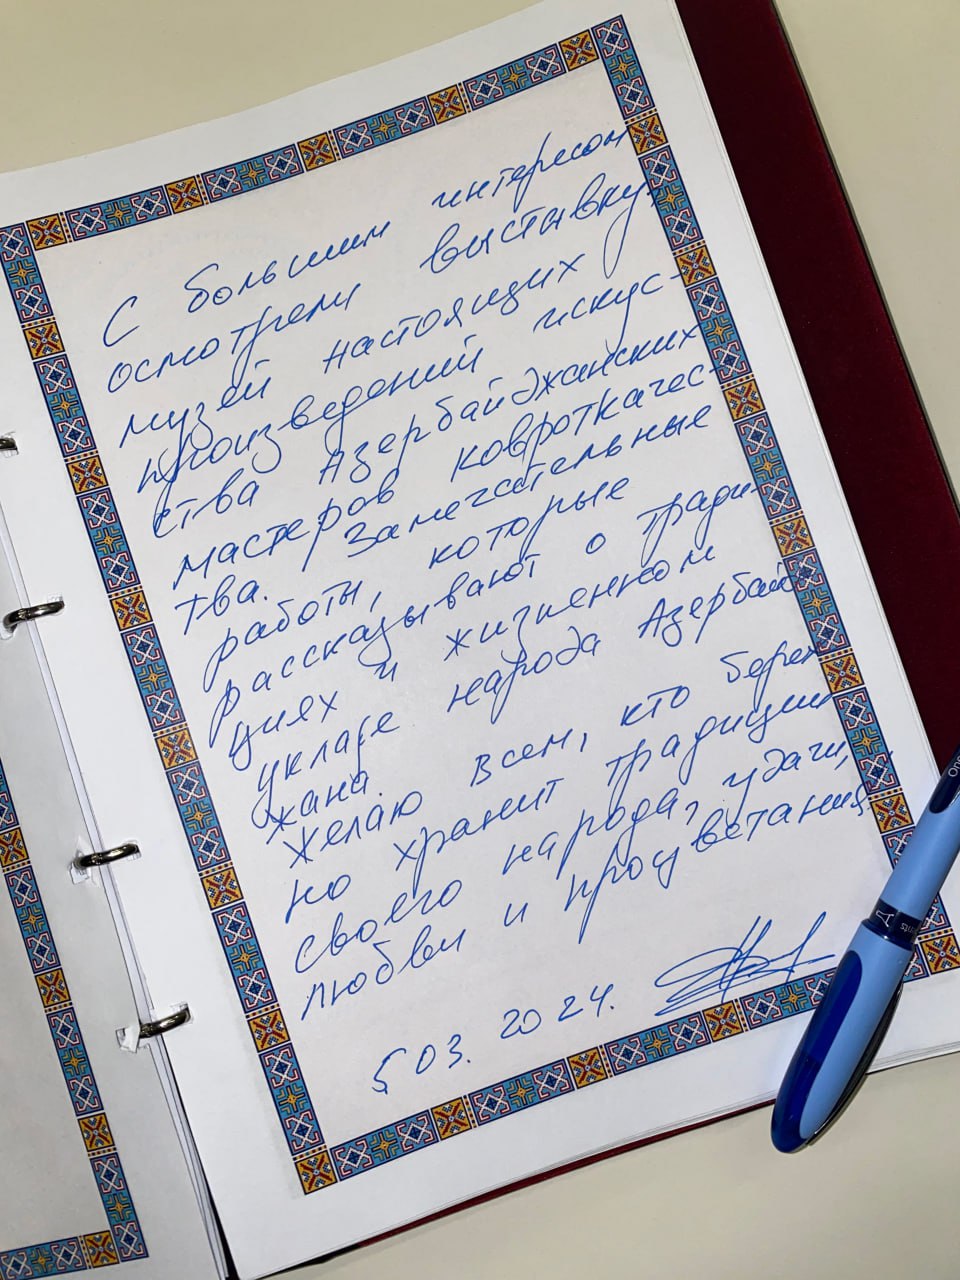 С большим интересом
осмотрели выставку-
музей настоящих
произведений искус-
ства Азербайджанских
мастеров ковроткачес-
тва. Замечательные
работы, которые
рассказывают о тради-
циях и жизненном
укладе народа Азербайд-
жана.
Желаю всем, кто береж-
но хранит традиции
своего народа, удачи,
любви и процветания.
5 03. 2024.